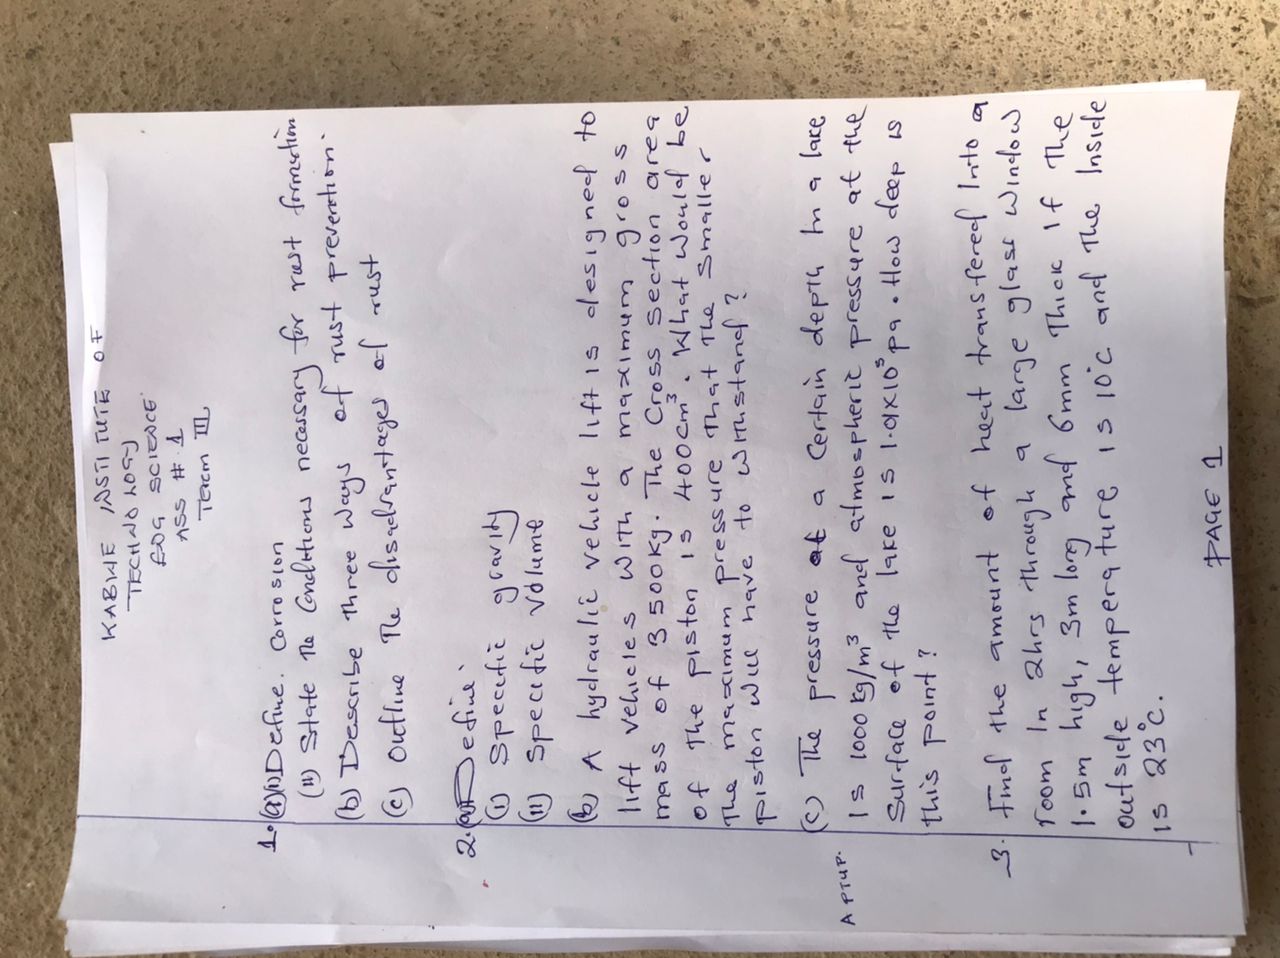 KABWE INSTITUTE OF
TECHNOLOGY
ENG SCIENCE
ASS # 1
TERM III
1. (a)(i) Define. Corrosion
(ii) State the Conditions necessary for rust formation
(b) Describe three ways of rust prevention.
(c) Outline The disadvantages of rust
2. (a) Define.
(i) Specific gravity
(ii) Specific Volume
(b) A hydraulic vehicle lift is designed to
lift vehicles with a maximum gross
mass of 3 500kg. The Cross section area
of the piston is 400cm³. What would be
The maximum pressure that the smaller
piston will have to withstand?
(c) The pressure at a certain depth in a lake
is 1000 kg/m³ and atmospheric pressure at the
Surface of the lake is 1.01x10⁵ pa. How deep is
this point?
3. Find the amount of heat transfered into a
room in 2hrs through a large glass window
1.5m high, 3m long and 6mm Thick if the
outside temperature is 10°C and The Inside
is 23°C.
PAGE 1